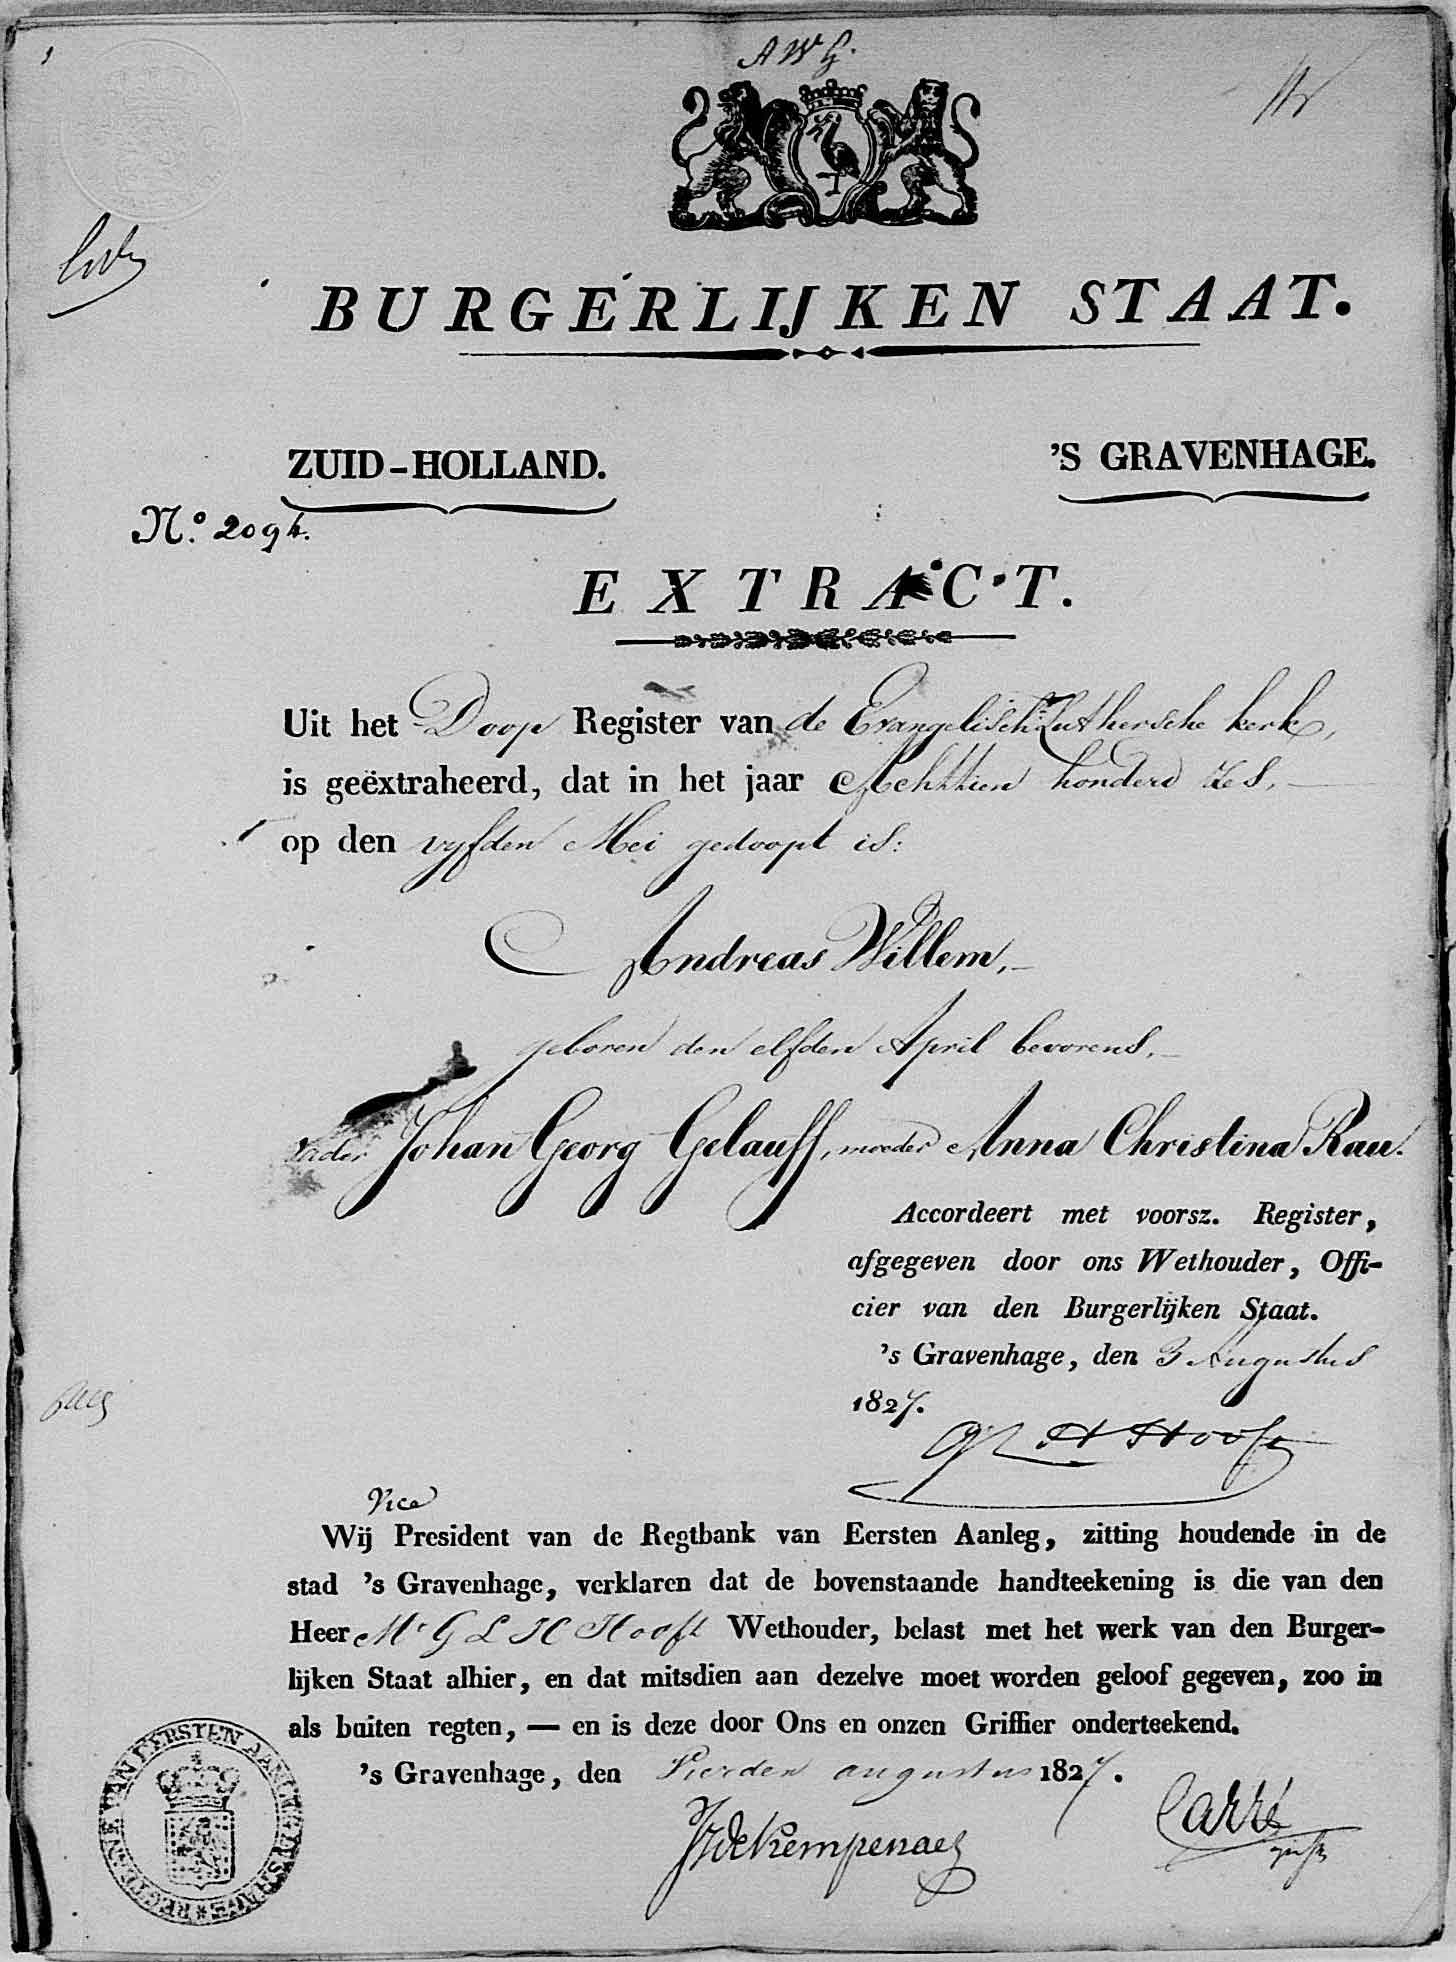 A W G.
BURGERLIJKEN STAAT.
ZUID-HOLLAND.
'S GRAVENHAGE.
N.o 2094.
EXTRACT.
Uit het Doop Register van de Evangelisch Luthersche kerk,
is geëxtraheerd, dat in het jaar Achttien honderd zes,
op den vyfden Mei gedoopt is:
Andreas Willem,
geboren den elfden April bevorens,
vader Johan Georg Gelauff, moeder Anna Christina Rau.
Accordeert met voorsz. Register,
afgegeven door ons Wethouder, Offi-
cier van den Burgerlijken Staat.
's Gravenhage, den 3 Augustus
1827.
G L H Hooft
Vice
Wij President van de Regtbank van Eersten Aanleg, zitting houdende in de
stad 's Gravenhage, verklaren dat de bovenstaande handteekening is die van den
Heer Mr G L H Hooft Wethouder, belast met het werk van den Burger-
lijken Staat alhier, en dat mitsdien aan dezelve moet worden geloof gegeven, zoo in
als buiten regten, — en is deze door Ons en onzen Griffier onderteekend.
's Gravenhage, den Vierden augustus 1827.
deKempenaer
Carré